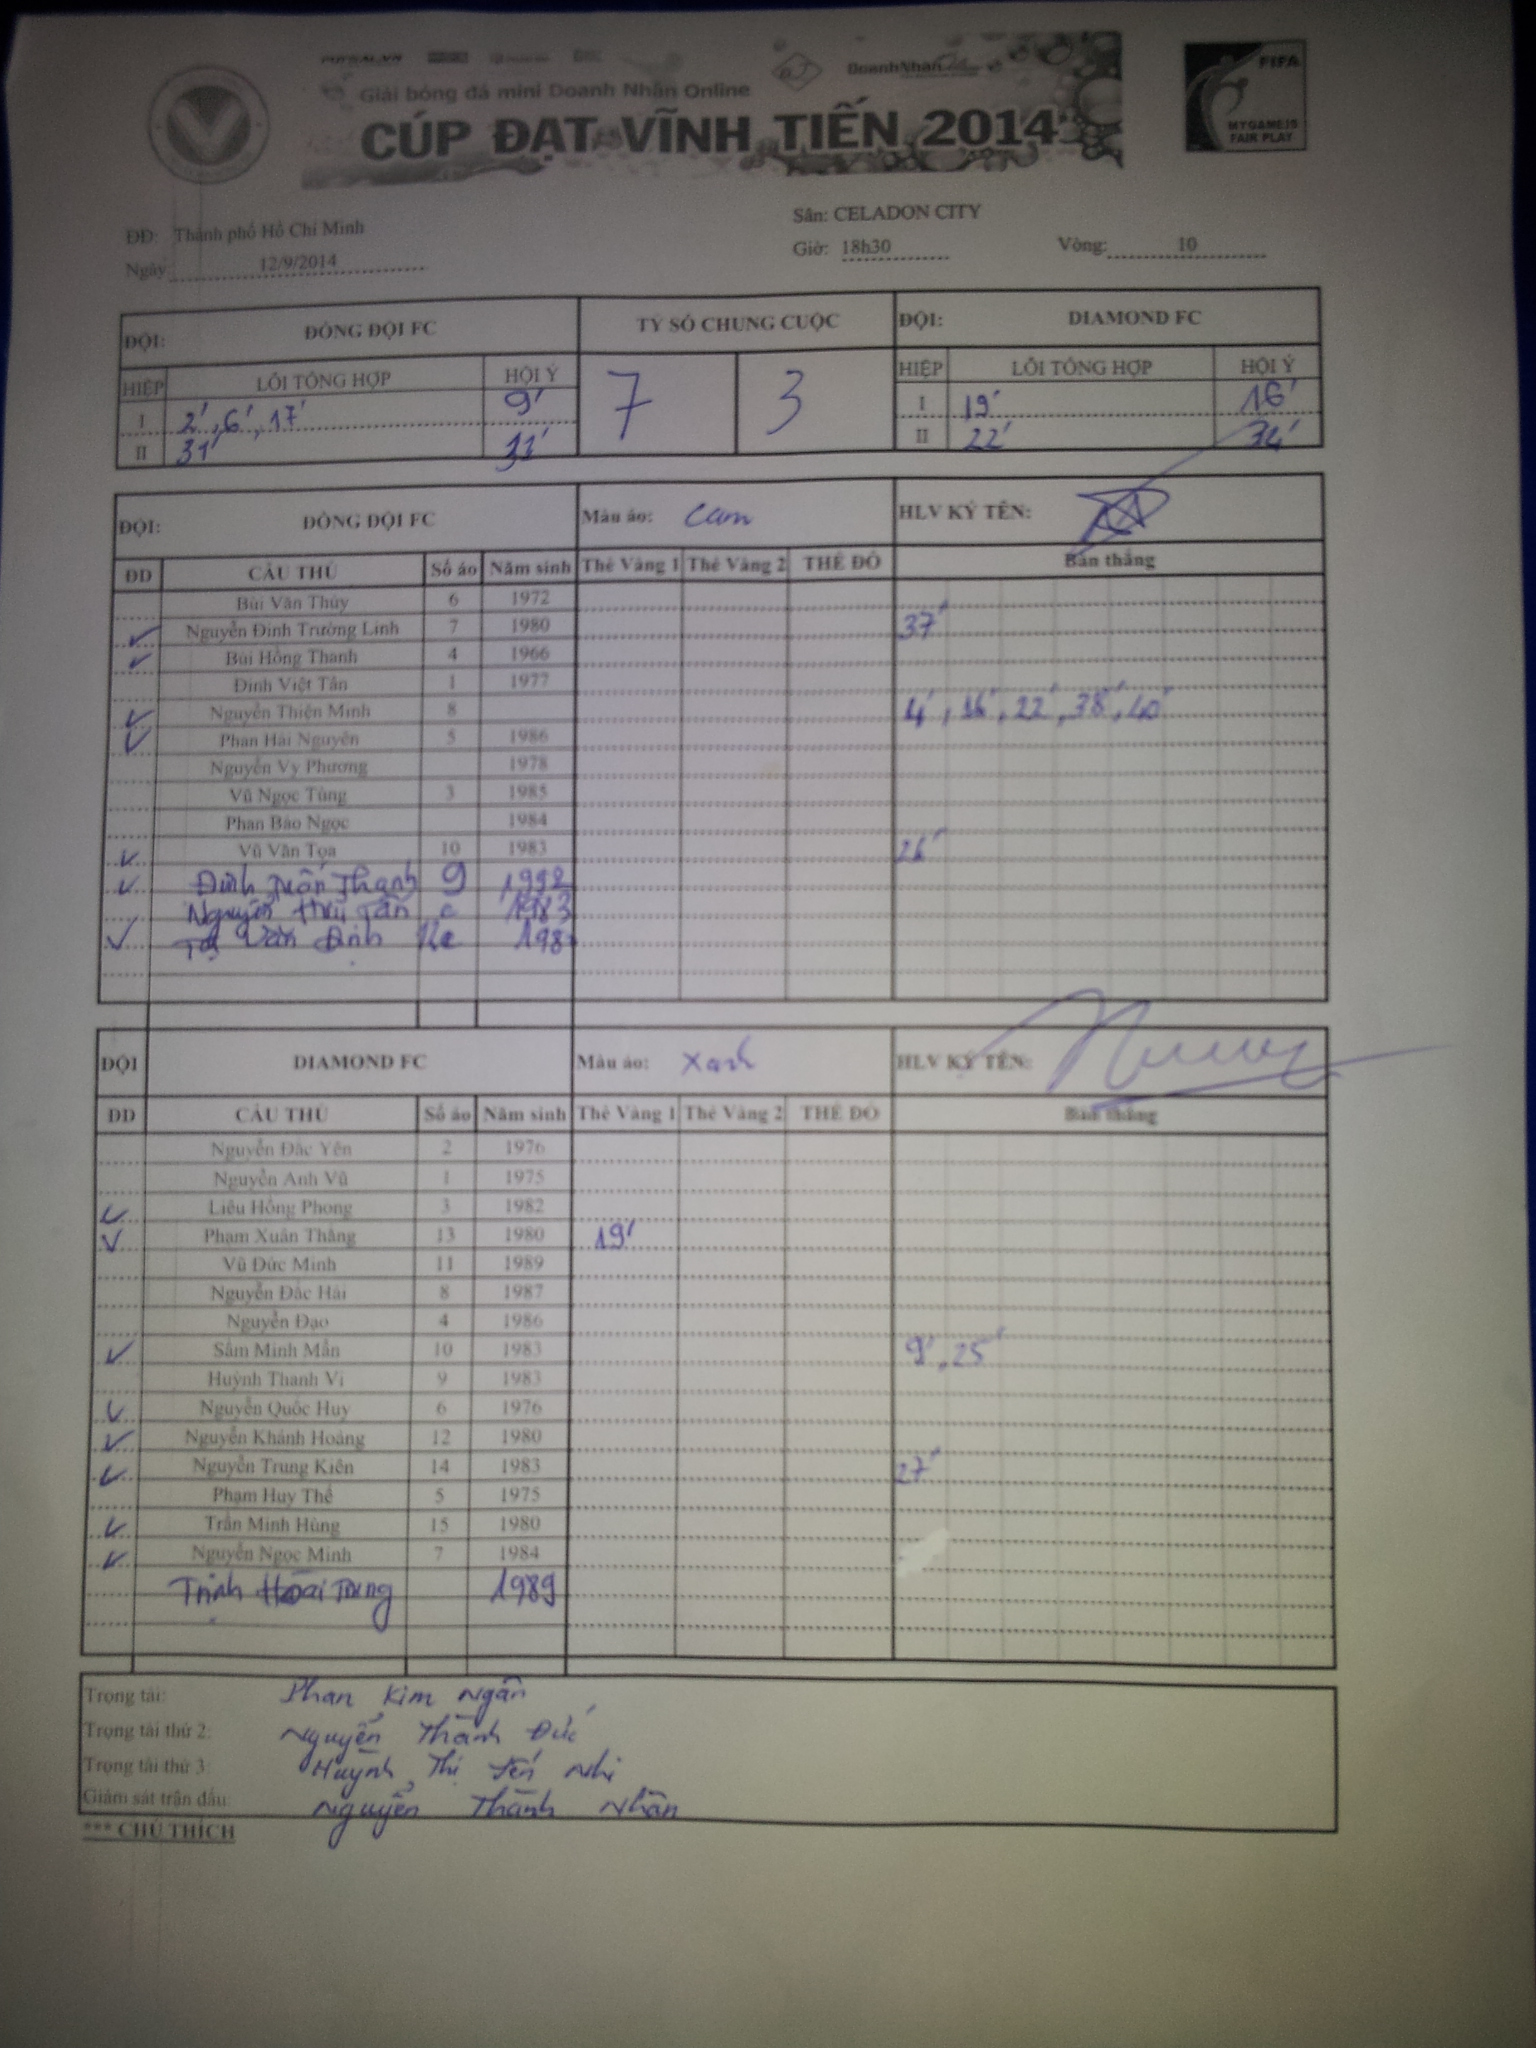 FUTSAL.VN
DoanhNhan
Giải bóng đá mini Doanh Nhân Online
CÚP ĐẠT VĨNH TIẾN 2014
FIFA
MY GAME IS
FAIR PLAY
ĐĐ: Thành phố Hồ Chí Minh
Sân: CELADON CITY
Ngày 12/9/2014
Giờ: 18h30 Vòng: 10
ĐỘI: ĐỒNG ĐỘI FC TỶ SỐ CHUNG CUỘC ĐỘI: DIAMOND FC
HIỆP LỖI TỔNG HỢP HỘI Ý 7 3 HIỆP LỖI TỔNG HỢP HỘI Ý
I 2', 6', 17' 9' I 19' 16'
II 31' 31' II 22' 34'
ĐỘI: ĐỒNG ĐỘI FC Màu áo: Cam HLV KÝ TÊN:
ĐD CẦU THỦ Số áo Năm sinh Thẻ Vàng 1 Thẻ Vàng 2 THẺ ĐỎ Bàn thắng
Bùi Văn Thúy 6 1972
Nguyễn Đình Trường Linh 7 1980 37'
Bùi Hồng Thanh 4 1966
Đinh Việt Tân 1 1977
Nguyễn Thiện Minh 8 4', 16', 22', 38', 40'
Phan Hải Nguyên 5 1986
Nguyễn Vy Phương 1978
Vũ Ngọc Tùng 3 1985
Phan Bảo Ngọc 1984
Vũ Văn Tọa 10 1983 26'
Đinh Tuấn Thạnh 9 1992
Nguyễn Hữu Tấn 1983
Tạ Văn Định 198
ĐỘI DIAMOND FC Màu áo: Xanh HLV KÝ TÊN:
ĐD CẦU THỦ Số áo Năm sinh Thẻ Vàng 1 Thẻ Vàng 2 THẺ ĐỎ Bàn thắng
Nguyễn Đắc Yên 2 1976
Nguyễn Anh Vũ 1 1975
Liêu Hồng Phong 3 1982
Phạm Xuân Thắng 13 1980 19'
Vũ Đức Minh 11 1989
Nguyễn Đắc Hải 8 1987
Nguyễn Đạo 4 1986
Sầm Minh Mẫn 10 1983 9', 25'
Huỳnh Thanh Vi 9 1983
Nguyễn Quốc Huy 6 1976
Nguyễn Khánh Hoàng 12 1980
Nguyễn Trung Kiên 14 1983 27'
Phạm Huy Thế 5 1975
Trần Minh Hùng 15 1980
Nguyễn Ngọc Minh 7 1984
Trịnh Hoài Trung 1989
Trọng tài: Phan Kim Ngân
Trọng tài thứ 2: Nguyễn Thành Đức
Trọng tài thứ 3: Huỳnh Thị Yến Nhi
Giám sát trận đấu: Nguyễn Thành Nhân
*** CHÚ THÍCH